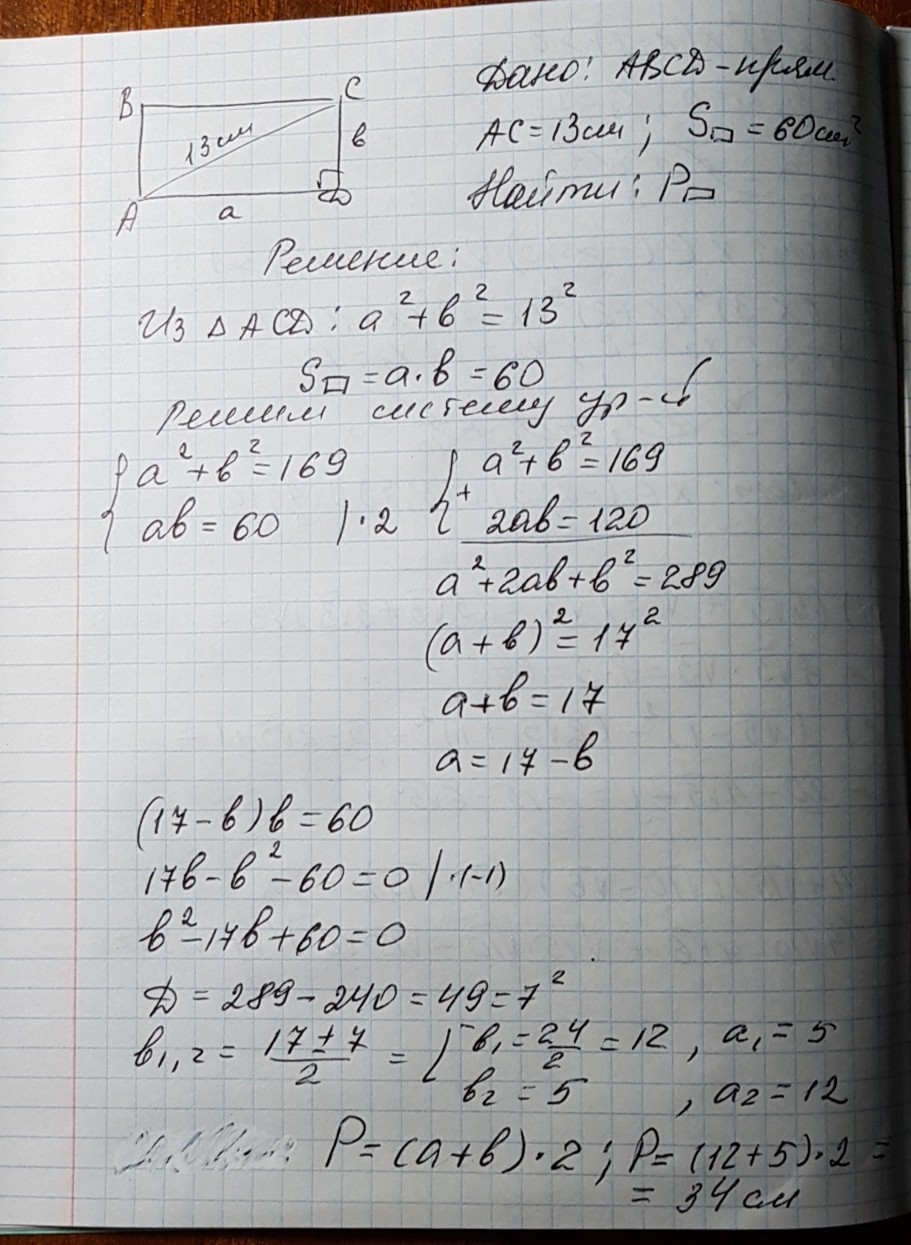 B C
13см в
A a D
Дано: ABCD - прям.
AC = 13см ; S▭ = 60см²
Найти: P▭
Решение:
Из △ACD: a² + в² = 13²
S▭ = a · в = 60
Решим систему ур-й
{ a² + в² = 169
ab = 60 | · 2
{ a² + в² = 169
+ 2ab = 120
a² + 2ab + в² = 289
(a + в)² = 17²
a + в = 17
a = 17 - в
(17 - в) в = 60
17в - в² - 60 = 0 | · (-1)
в² - 17в + 60 = 0
D = 289 - 240 = 49 = 7²
в₁,₂ = (17 ± 7)/2 = [ в₁ = 24/2 = 12 , a₁ = 5
в₂ = 5 , a₂ = 12
P = (a + в) · 2 ; P = (12 + 5) · 2 =
= 34 см